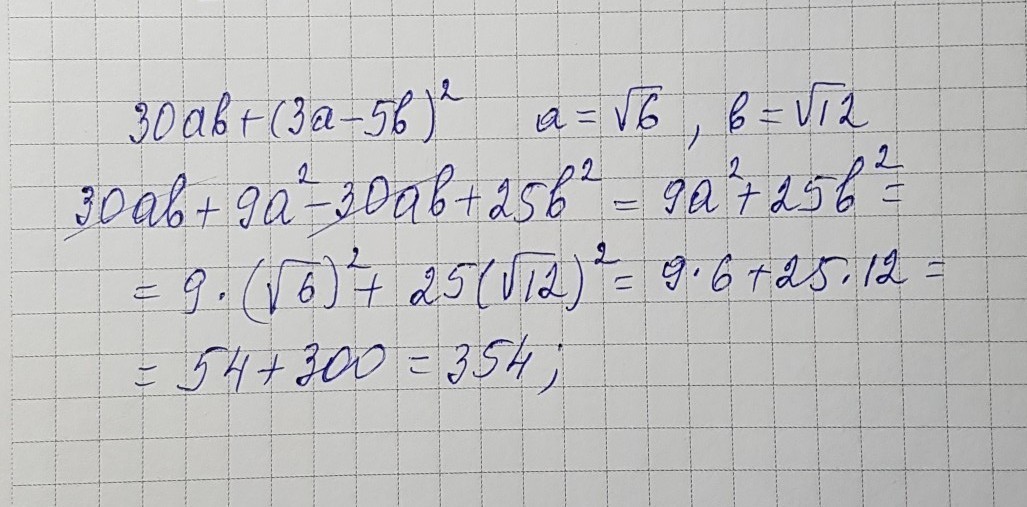 30ab+(3a-5b)² a=√6, b=√12
30ab+9a²-30ab+25b²=9a²+25b²=
=9·(√6)²+25(√12)²=9·6+25·12=
=54+300=354;